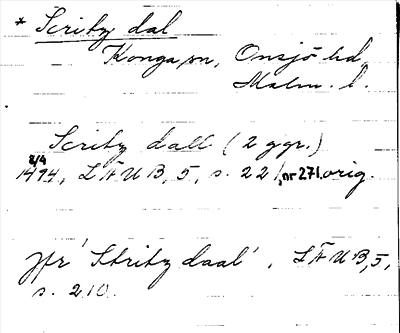 * Scritz dal
Konga sn, Onsjö hd
Malm. l.
Scritz dall (2 ggr.)
8/4
1494, LÄUB, 5, s. 221, nr 271. orig.
jfr 'Stritz daal', LÄUB, 5,
s. 210.